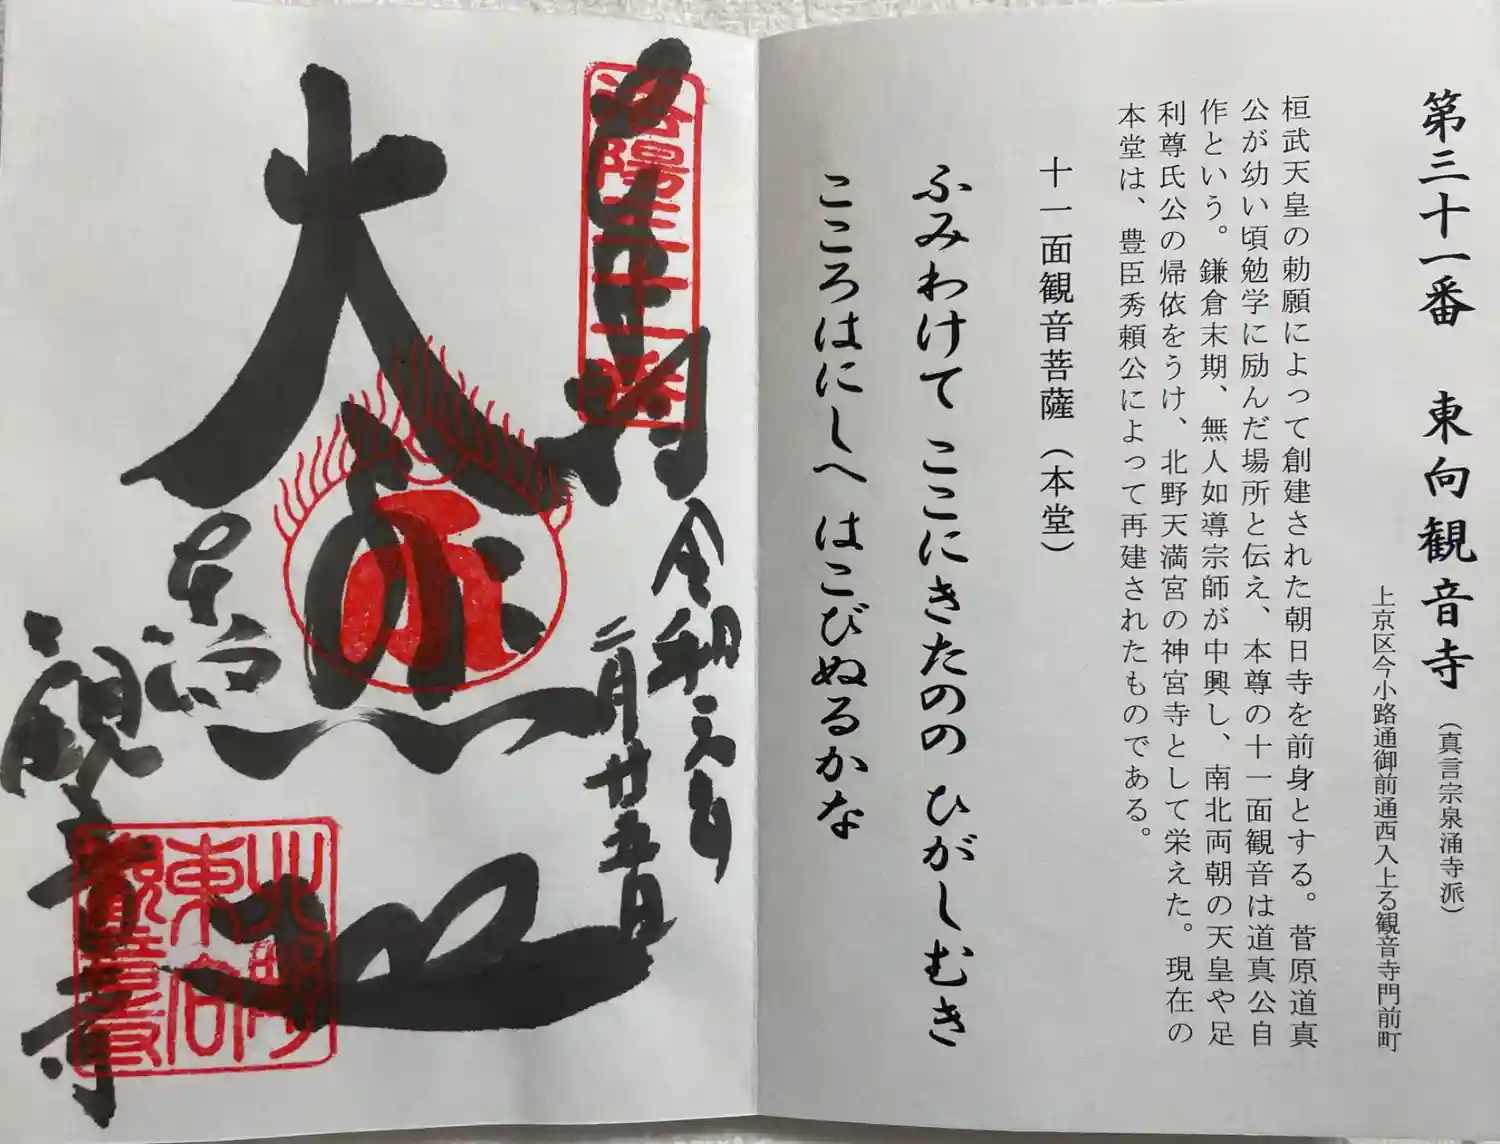 第三十一番　東向観音寺（真言宗泉涌寺派）
上京区今小路通御前通西入上る観音寺門前町
桓武天皇の勅願によって創建された朝日寺を前身とする。菅原道真
公が幼い頃勉学に励んだ場所と伝え、本尊の十一面観音は道真公自
作という。鎌倉末期、無人如導宗師が中興し、南北両朝の天皇や足
利尊氏公の帰依をうけ、北野天満宮の神宮寺として栄えた。現在の
本堂は、豊臣秀頼公によって再建されたものである。
十一面観音菩薩（本堂）
ふみわけて ここにきたのの ひがしむき
こころはにしへ はこびぬるかな
洛陽三十一番
令和
二月廿五日
大悲
観音寺
北野
東向
観音寺